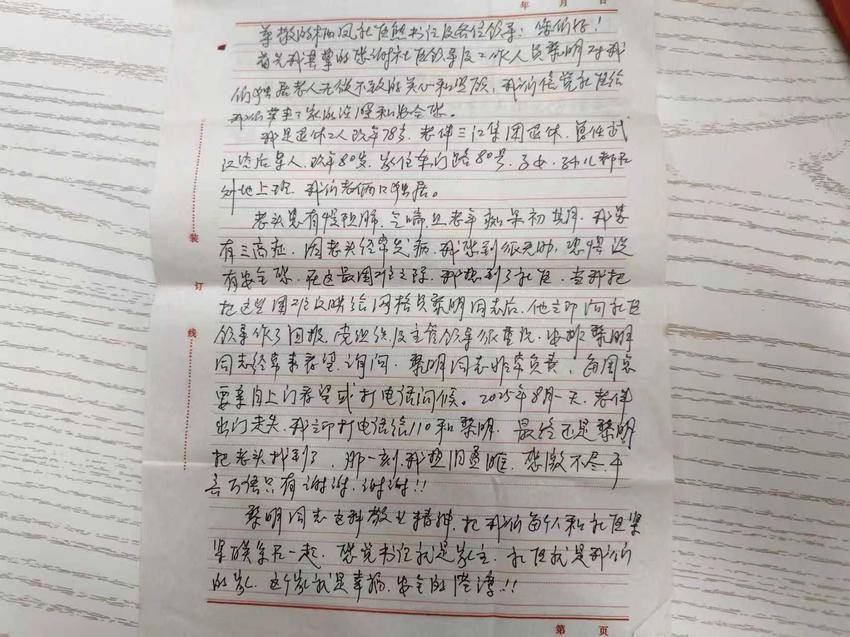 年 月 日
尊敬的梧凤社区熊书记及各位领导：您们好！
首先我真挚的感谢社区领导及工作人员黎明对我
们独居老人无微不致的关心和照顾，我们感觉社区给
我们带来了家的温暖和安全感。
我是退休工人，改年78岁，老伴三江集团退休，曾任武
汉货后军人，改年80岁，家住车门路80号，子女、孙儿都在
外地上班，我们老俩口独居。
老头患有慢阻肺、气喘且老年痴呆初期，我患
有三高症，因老头经常犯病，我感到很无助，恐惧没
有安全感，在这最困难之际，我想到了社区，当我把
把这些困难反映给网格员黎明同志后，他立即向社区
领导作了回报，党组织及主管领导很重视，安排黎明
同志经常来看望、询问，黎明同志非常负责，每周
要亲自上门看望或打电话问候。2025年8月一天，老伴
出门走失，我立即打电话给110和黎明，最终还是黎明
把老头找到了，那一刻我热泪盈眶，感激不尽，千
言万语只有谢谢，谢谢!!
黎明同志这种敬业精神，把我们每个人和社区紧
紧联系在一起，感觉书记就是家主，社区就是我们
的家，这个家就是幸福、安全的港湾!!
装
订
线
第 页